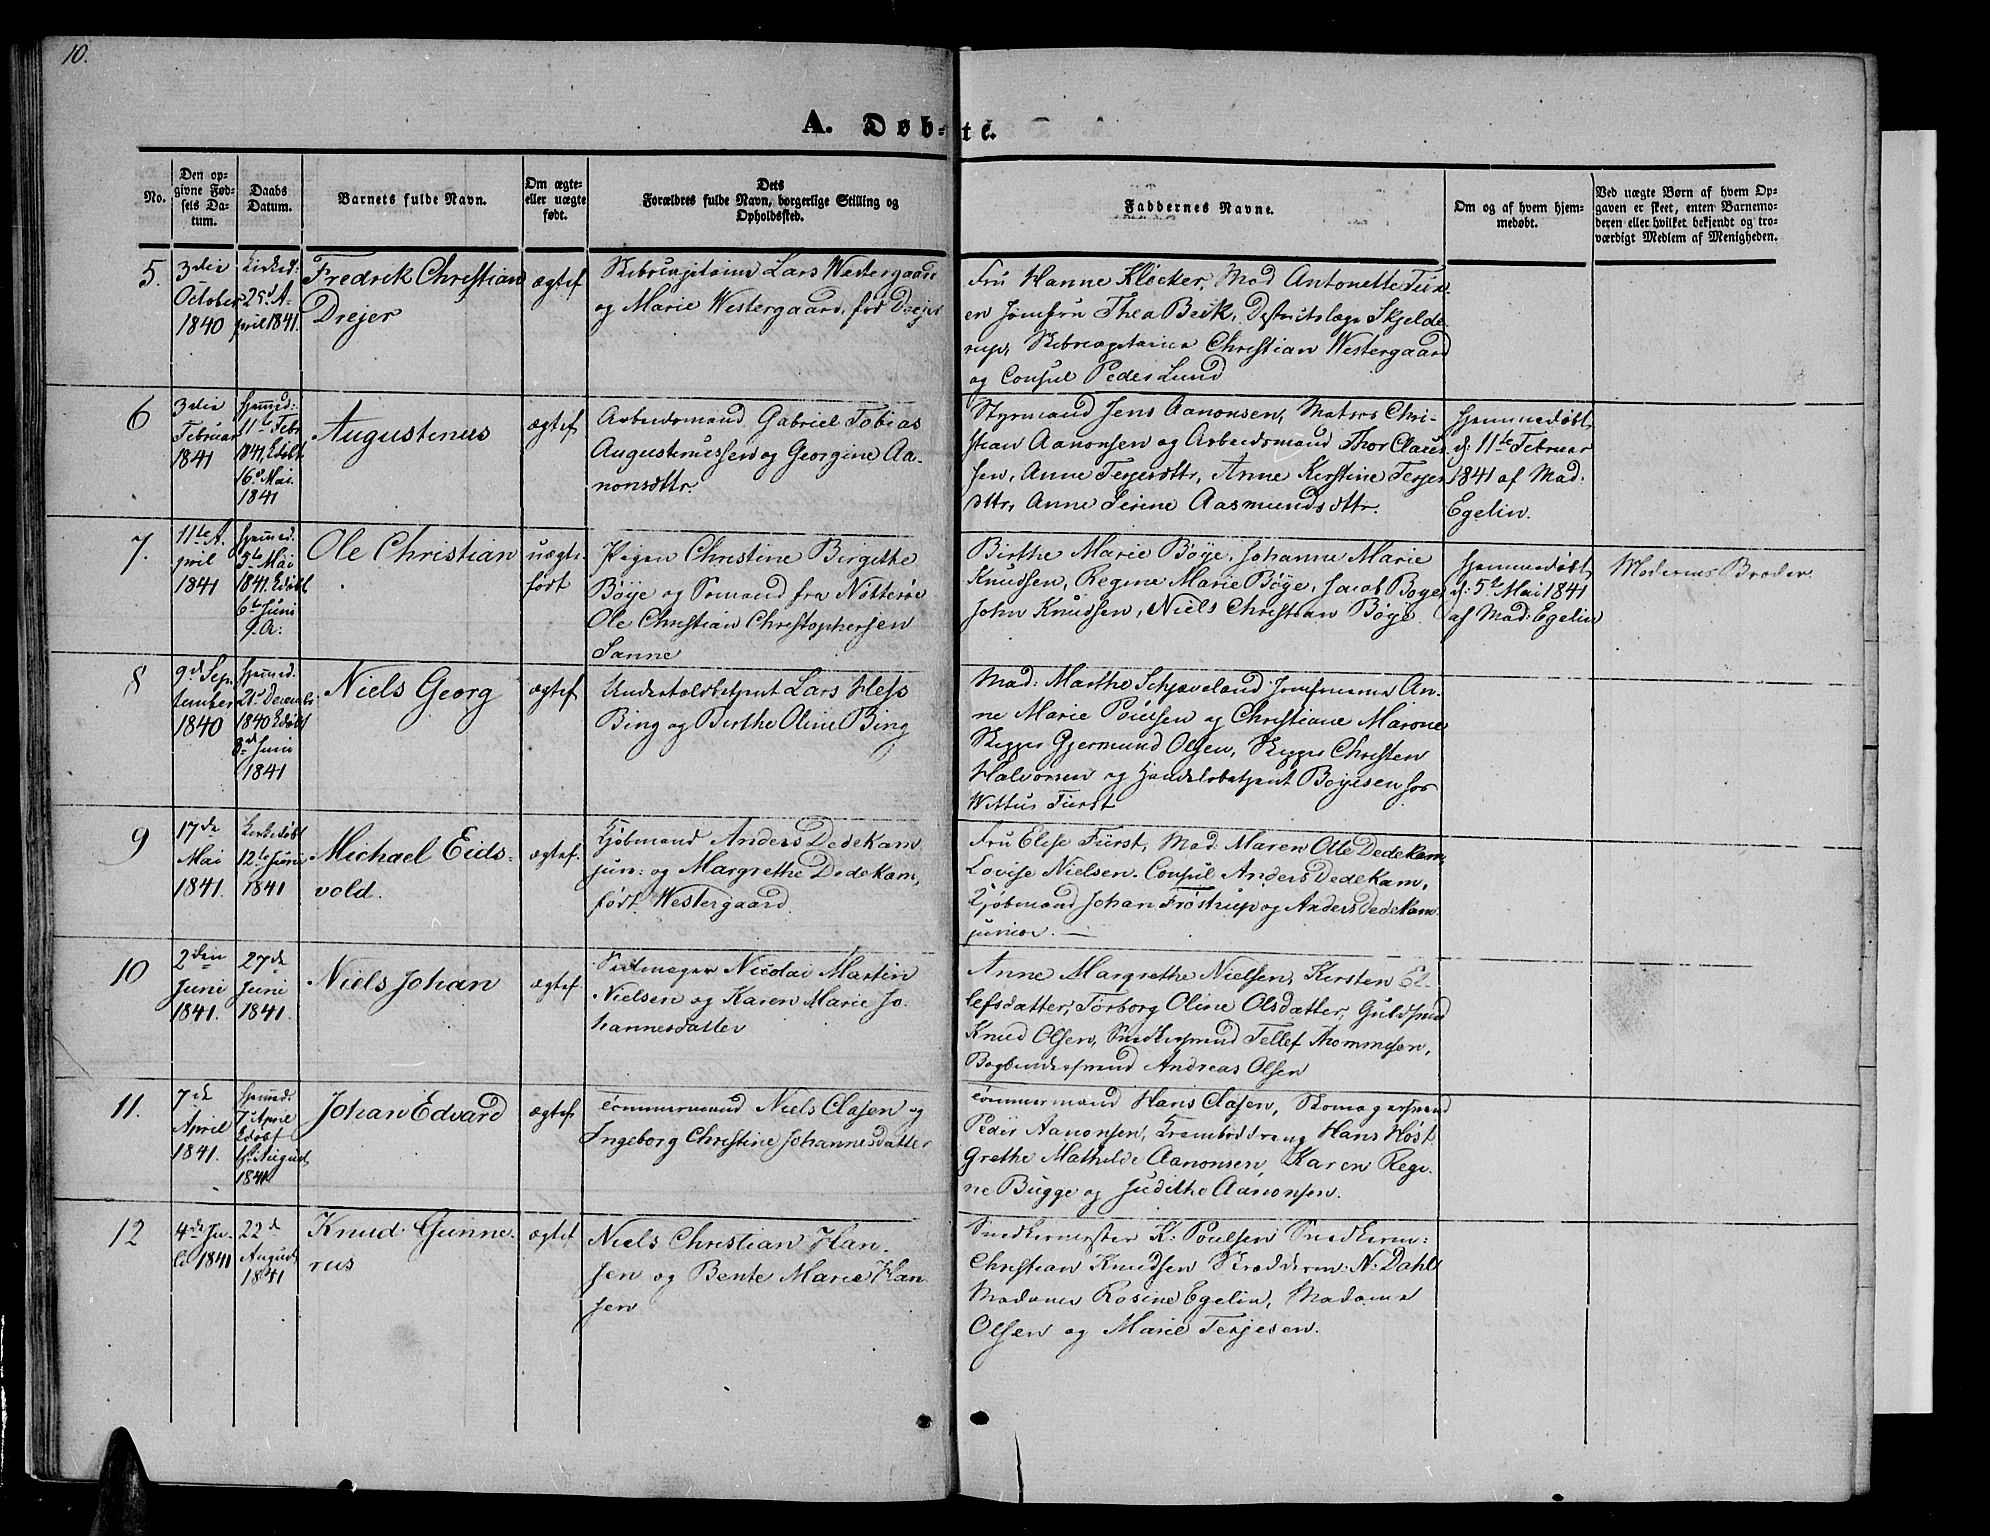 10.
A. Døb-te.
No.
Den op-
givne Fød-
sels Da-
tum.
Daabs
Datum.
Barnets fulde Navn.
Om ægte-
eller uægte
født.
Dets
Forældres fulde Navn, borgerlige Stilling og
Opholdssted.
Faddernes Navne.
Om og af hvem hjem-
medøbt.
Ved uægte Børn af hvem Op-
gaven er skeet, enten Barnemo-
deren eller hvilket bekjendt og tro-
værdigt Medlem af Menigheden.
5.
3die
October
1840
Kirked:
25d A-
pril 1841.
Fredrik Christian
Drejer
ægtef
Skibscapitaine Lars Westergaard
og Marie Westergaard, fød Drejer
Fru Hanne Kløcker, Mad Antonette
en Jomfru Thea Beck, Destrictslæge Skjelde-
rup, Skibscapitaine Christian Westergaard
og Consul Peder Lund
6
3die
Februar
1841
Hjemmed:
11te Febr
1841, Edøbt
16d Mai
1841
Augustinus
ægtef
Arbeidsmand Gabriel Tobias
Augustinussen og Georgine Aa-
nonsdttr.
Styrmand Jens Aanonsen, Matros Chri-
stian Aanonsen og Arbeidsmand Thor Claus
sen, Anne Terjesdttr, Anne Kirstine Terjes
dttr, Anne Serine Aasmundsdttr.
Hjemmedøbt
d: 11te Februar
1841 af Mad.
Egelin.
7.
11te A-
pril
1841
Hjemmed.
5te Mai
1841. Edøbt
6te Juni
s. A:
Ole Christian
uægte
født
Pigen Christine Birgithe
Bøye og Sømand fra Nøtterøe
Ole Christian Christophersen
Sanne
Birthe Marie Bøye, Johanne Marie
Knudsen, Regine Marie Bøye, Jacob Boyer
John Knudsen, Niels Christian Bøye.
Hjemmedøbt
d: 5te Mai 1841
af Mad: Egelin
Moderens Broder.
8
9d Sep-
tember
1840
Hjemmed.
21d Decemb:
1840 Edøbt
8d Juni
1841
Niels Georg
ægtef
Underholdbetjent Lars Hess
Bing og Birthe Oline Bing
Mad: Marthe Schjæveland Jomfruerne An-
ne Marie Poulsen og Christiane Marone
Skipper Gjermund Olsen, Skipper Christen
Halvorsen og Handelsbetjent Boyesen for
Wittus Fürst
9
17de
Mai
1841.
Kirkedøbt
12te Juni
1841
Michael Eids-
vold.
ægtef.
Kjøbmand Anders Dedekam
jun: og Margrethe Dedekam,
født Westergaard.
Fru Elise Fürst, Mad: Maren Otte Dedekam
Lovise Nielsen. Consul Anders Dedekam,
Kjøbmand Johan Frøstrup og Anders Dedekam
junior.
10
2den
Juni
1841.
27de
Juni
1841.
Niels Johan
ægtef
Seilmager Nicolai Martin
Nielsen og Karen Marie Jo-
hannesdatter
Anne Margrethe Nielsen, Kirsten El-
lefsdatter, Torborg Oline Olsdatter, Guldsmed
Knud Olsen, Snedkersvend Tellef Thommesen,
Bogbindersvend Andreas Olsen
11.
7de
April
1841.
Hjemmed.
7d April
Edøbt
1ste August
1841
Johan Edvard
ægtef
Tømmermand Niels Clasen og
Ingeborg Christine Johannesdatter
Tømmermand Hans Clasen, Skomagersvend
Peder Aanonsen, Kramboddreng Hans Høst
Grethe Mathilde Aanonsen, Karen Regi-
ne Bugge og Judithe Aanonsen.
12
4de Ju-
li 1841
22d
August
1841
Knud Gunne-
rus
ægtef
Niels Christian Han-
sen og Bente Marie Han-
sen
Snedkermester K. Poulsen Snedkerm:
Christian Knudsen Skrædderm: N: Dahl
Madame Rosine Egelin, Madame
Olsen og Marie Terjesen.